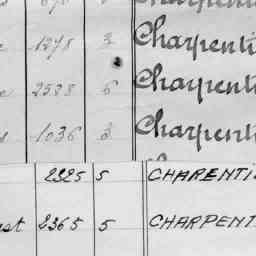 1278 3 Charpenti
2588 5 Charpenti
1036 3 Charpenti
2325 5 CHARENTI
st 2365 5 CHARPENT